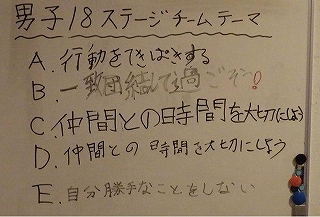 男子18ステージチームテーマ
A. 行動をてきぱきする
B. 一致団結して過ごそう!
C. 仲間との時間を大切にしよう
D. 仲間との時間を大切にしよう
E. 自分勝手なことをしない